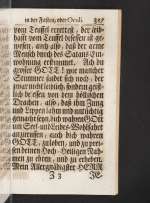 in der Fasten, oder Oculi. 357
vom Teuffel errettet, der leib-
hafft vom Teuffel besessen ist ge-
wesen, auch also, daß der arme
Mensch durch des Satans Ein-
wohnung erstummet. Ach du
grosser GOTT! wie mancher
Stummer findet sich noch, der
zwar nicht leiblich, sondern geist-
lich besessen von dem höllischen
Drachen, also, daß ihm Zung
und Lippen lahm und untüchtig
gemachet seyn, dich wahren GOtt
um Seel- und Leibes-Wohlfahrt
anzuruffen, auch dich wahren
GOTT, zu loben, und zu prei-
sen deinen Hoch-Heiligen Nah-
men zu ehren, und zu erheben.
Mein Allergnädigster HERR
Z 3